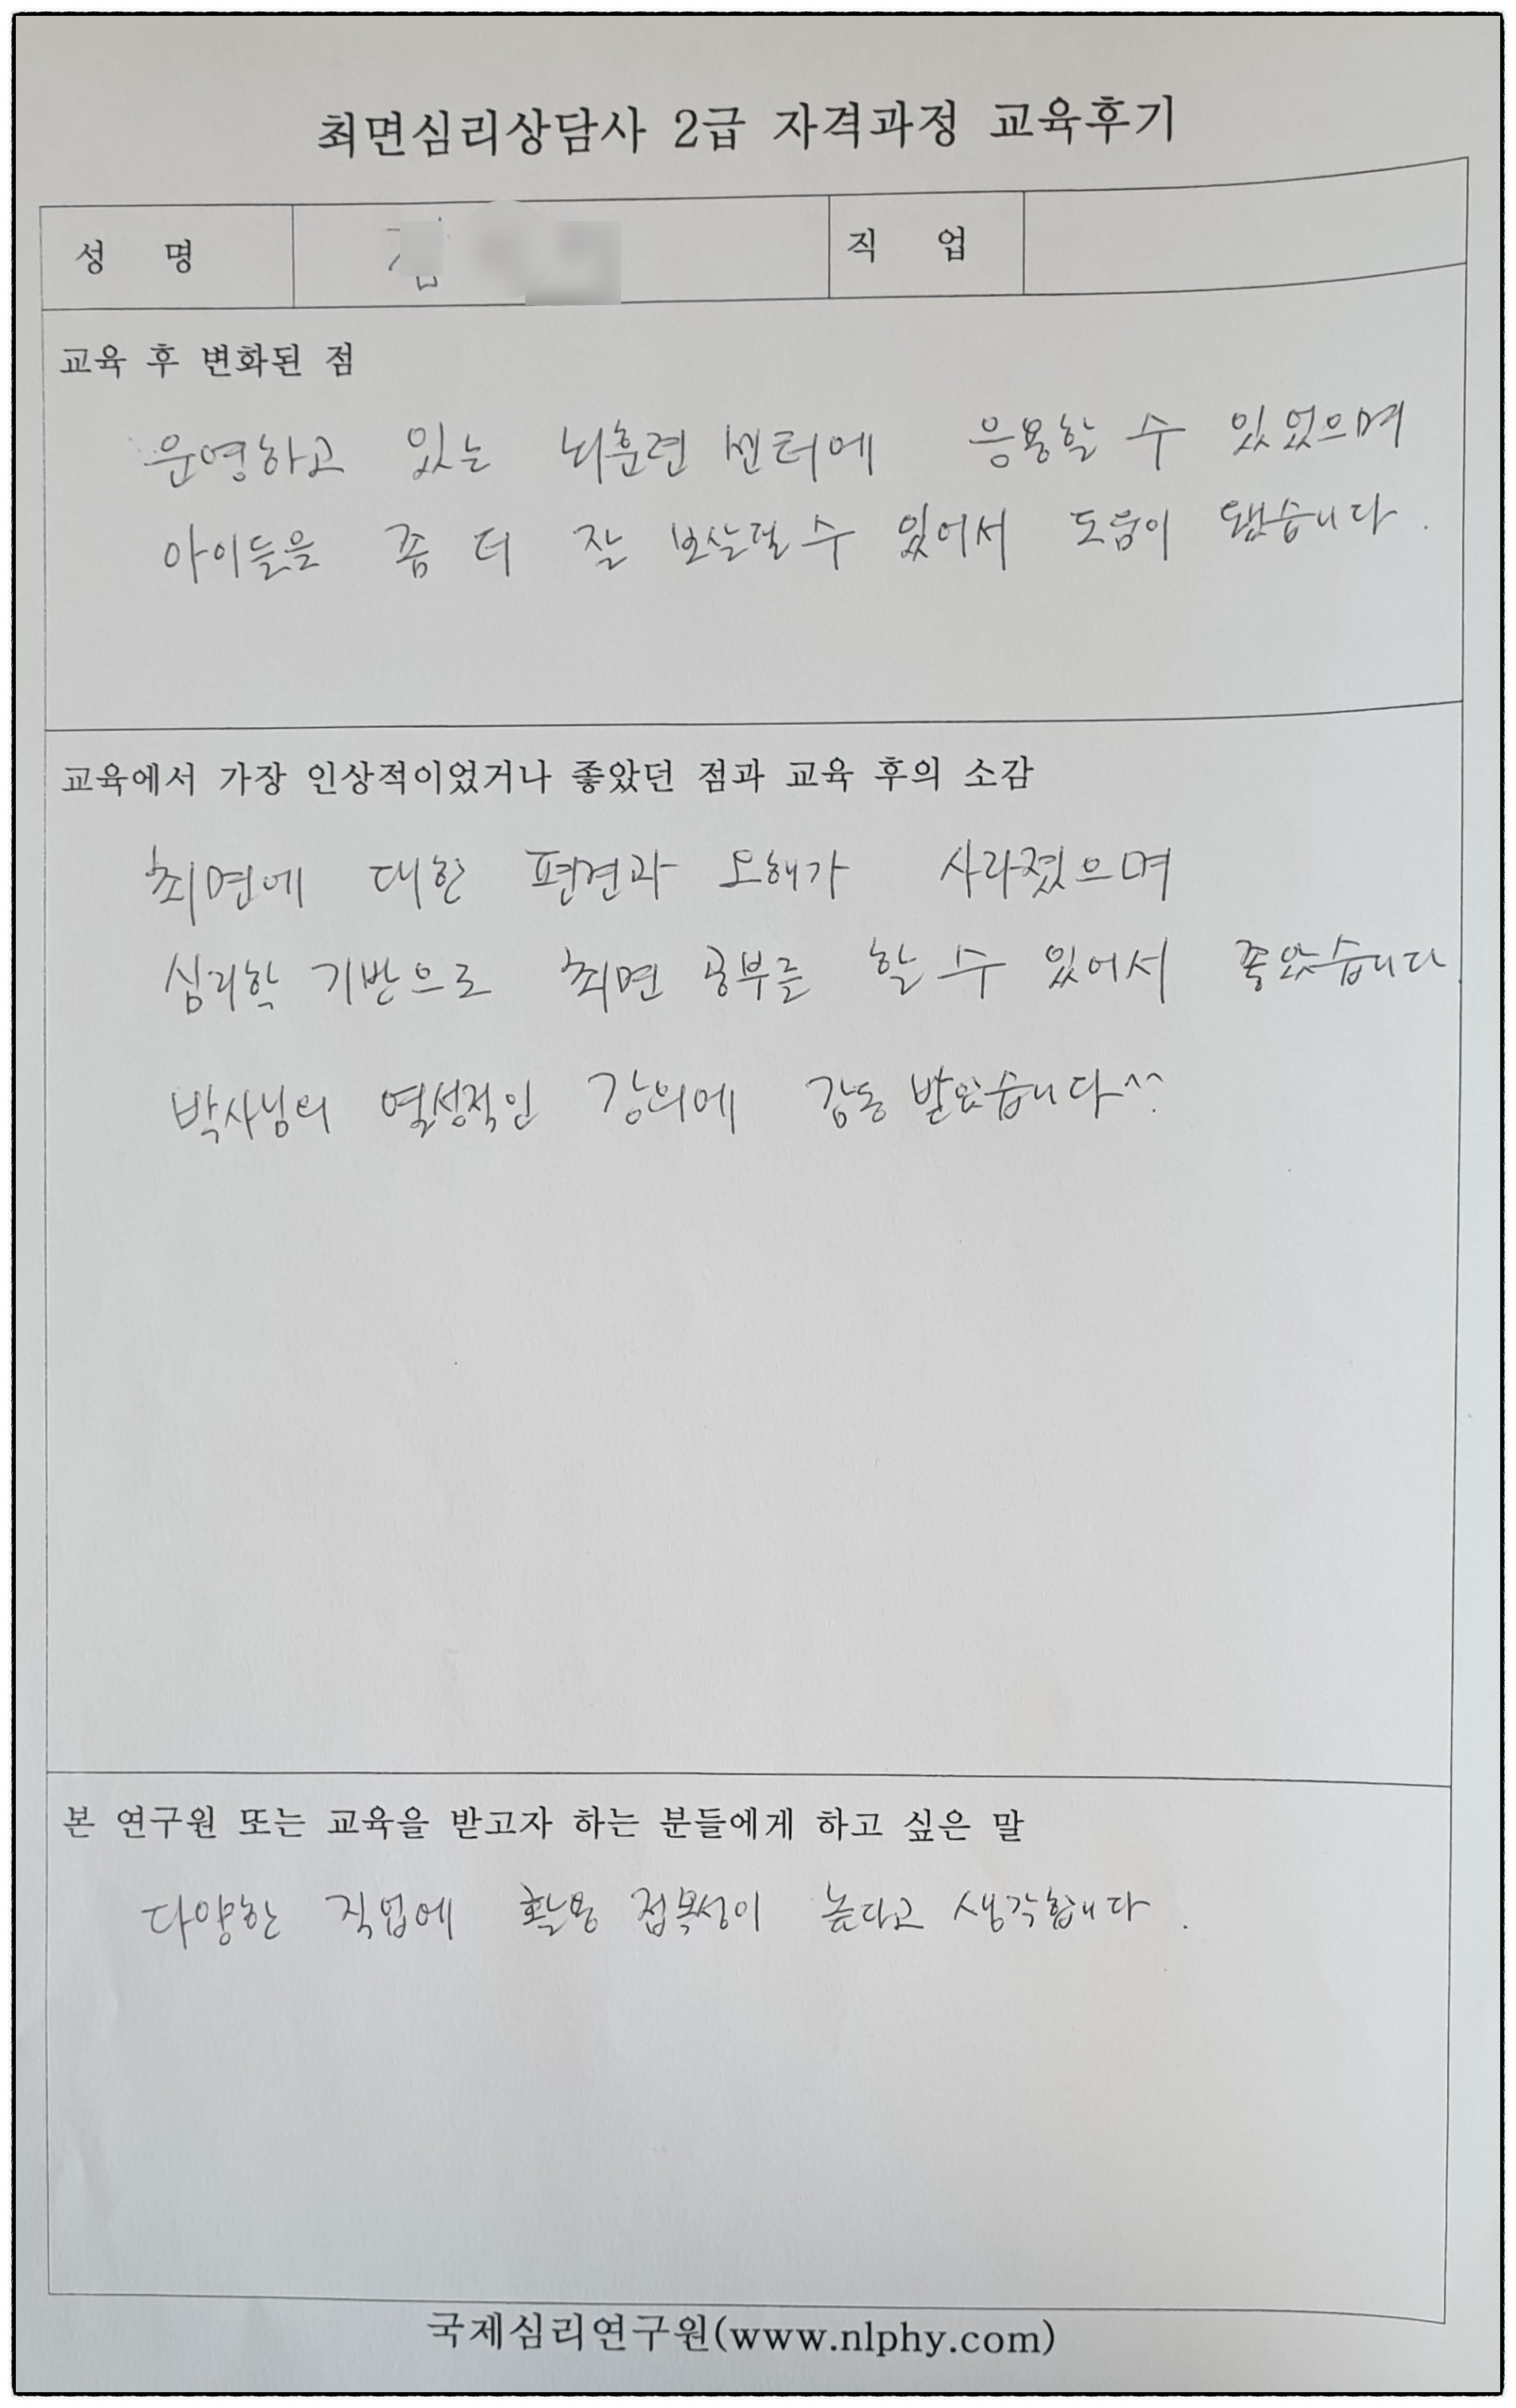 최면심리상담사 2급 자격과정 교육후기
성 명 직 업
교육 후 변화된 점
운영하고 있는 뇌훈련 센터에 응용할 수 있었으며
아이들을 좀 더 잘 보살필 수 있어서 도움이 됐습니다.
교육에서 가장 인상적이었거나 좋았던 점과 교육 후의 소감
최면에 대한 편견과 오해가 사라졌으며
심리학 기반으로 최면 공부를 할 수 있어서 좋았습니다
박사님의 열성적인 강의에 감동 받았습니다^^
본 연구원 또는 교육을 받고자 하는 분들에게 하고 싶은 말
다양한 직업에 활용 접목성이 높다고 생각합니다.
국제심리연구원(www.nlphy.com)